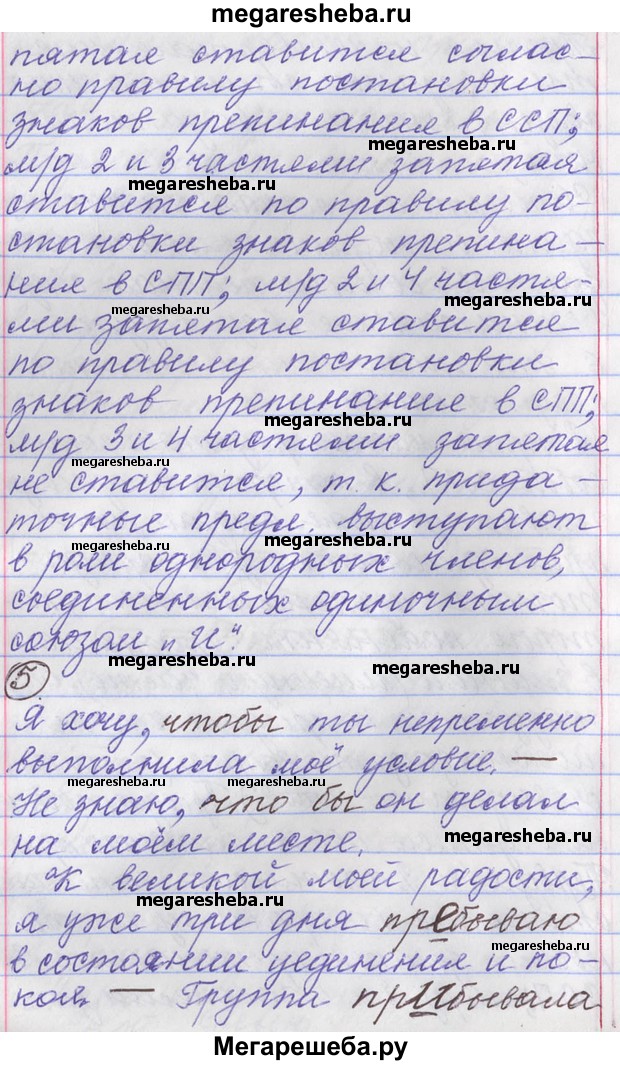 megaresheba.ru
пятая ставится соглас-
но правилу постановки
знаков препинания в ССП;
м/д 2 и 3 частями запятая
megaresheba.ru megaresheba.ru
ставится по правилу по-
становки знаков препина-
ния в СПП; м/д 2 и 4 частя-
megaresheba.ru megaresheba.ru
ми запятая ставится
по правилу постановки
знаков препинания в СПП;
megaresheba.ru
м/д 3 и 4 частями запятая
megaresheba.ru
не ставится, т. к. прида-
точные предл. выступают
megaresheba.ru megaresheba.ru
в роли однородных членов,
соединенных одиночным
союзом „И".
megaresheba.ru megaresheba.ru
5
Я хочу, чтобы ты непременно
выполнила моё условие. —
megaresheba.ru megaresheba.ru
Не знаю, что бы он делал
на моём месте.
megaresheba.ru
К великой моей радости,
я уже три дня пребываю
megaresheba.ru megaresheba.ru
в состоянии уединения и по-
коя. — Группа прибывала
Мегарешеба.ру